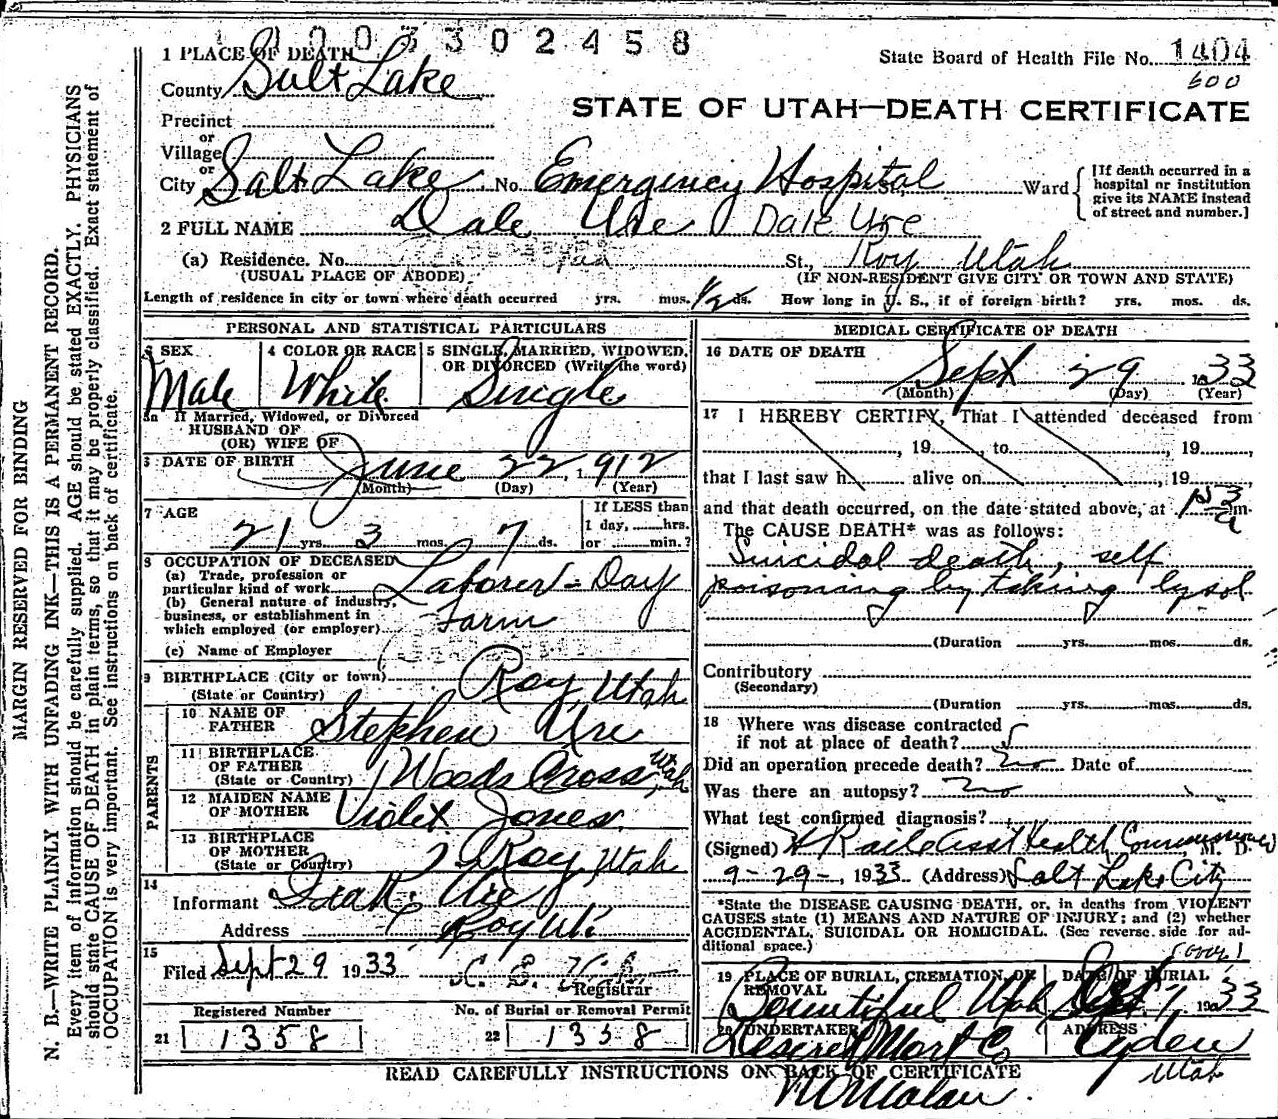 1003302458
State Board of Health File No. 1404
600
STATE OF UTAH—DEATH CERTIFICATE
1 PLACE OF DEATH
County Salt Lake
Precinct
or
Village
or
City Salt Lake No. Emergency Hospital Ward
[If death occurred in a hospital or institution give its NAME instead of street and number.]
2 FULL NAME Dale Ure Dale Ure
(a) Residence. No. St., Roy Utah
(USUAL PLACE OF ABODE) (IF NON-RESIDENT GIVE CITY OR TOWN AND STATE)
Length of residence in city or town where death occurred yrs. mos. 1/2 ds. How long in U. S., if of foreign birth? yrs. mos. ds.
PERSONAL AND STATISTICAL PARTICULARS
3 SEX Male
4 COLOR OR RACE White
5 SINGLE, MARRIED, WIDOWED, OR DIVORCED (Write the word) Single
5a If Married, Widowed, or Divorced
HUSBAND OF
(OR) WIFE OF
6 DATE OF BIRTH June 22, 1912
(Month) (Day) (Year)
7 AGE 21 yrs. 3 mos. 7 ds.
If LESS than
1 day, hrs.
or min.?
8 OCCUPATION OF DECEASED
(a) Trade, profession or
particular kind of work Laborer - Day
(b) General nature of industry,
business, or establishment in
which employed (or employer) Farm
(c) Name of Employer
9 BIRTHPLACE (City or town) Roy, Utah
(State or Country)
PARENTS
10 NAME OF FATHER Stephen Ure
11 BIRTHPLACE OF FATHER (State or Country) Woods Cross, Utah
12 MAIDEN NAME OF MOTHER Violet Jones
13 BIRTHPLACE OF MOTHER (State or Country) Roy, Utah
14
Informant Ure
Address Roy Ut.
15
Filed Sept 29 1933
Registrar
Registered Number
21 1358
No. of Burial or Removal Permit
22 1358
MEDICAL CERTIFICATE OF DEATH
16 DATE OF DEATH
Sept 29 1933
(Month) (Day) (Year)
17 I HEREBY CERTIFY, That I attended deceased from
, 19 , to , 19 ,
that I last saw h alive on , 19
and that death occurred, on the date stated above, at m.
The CAUSE DEATH* was as follows:
Suicidal death, self
poisoning by taking lysol
(Duration yrs. mos. ds.
Contributory
(Secondary)
(Duration yrs. mos. ds.
18 Where was disease contracted
if not at place of death?
Did an operation precede death? no Date of
Was there an autopsy? no
What test confirmed diagnosis?
(Signed) Asst Health Commissioner M. D.
9-29-, 1933 (Address) Salt Lake City
*State the DISEASE CAUSING DEATH, or, in deaths from VIOLENT
CAUSES state (1) MEANS AND NATURE OF INJURY; and (2) whether
ACCIDENTAL, SUICIDAL OR HOMICIDAL. (See reverse side for ad-
ditional space.)
(over)
19 PLACE OF BURIAL, CREMATION, OR REMOVAL
Bountiful Utah
DATE OF BURIAL
Oct 1, 1933
20 UNDERTAKER
Deseret Mort Co
ADDRESS
Ogden
Utah
READ CAREFULLY INSTRUCTIONS ON BACK OF CERTIFICATE
MARGIN RESERVED FOR BINDING
N. B.—WRITE PLAINLY WITH UNFADING INK—THIS IS A PERMANENT RECORD.
Every item of information should be carefully supplied. AGE should be stated EXACTLY. PHYSICIANS
should state CAUSE OF DEATH in plain terms, so that it may be properly classified. Exact statement of
OCCUPATION is very important. See instructions on back of certificate.